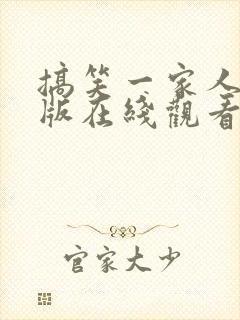 搞笑一家人
版在綫觀看
官家大少